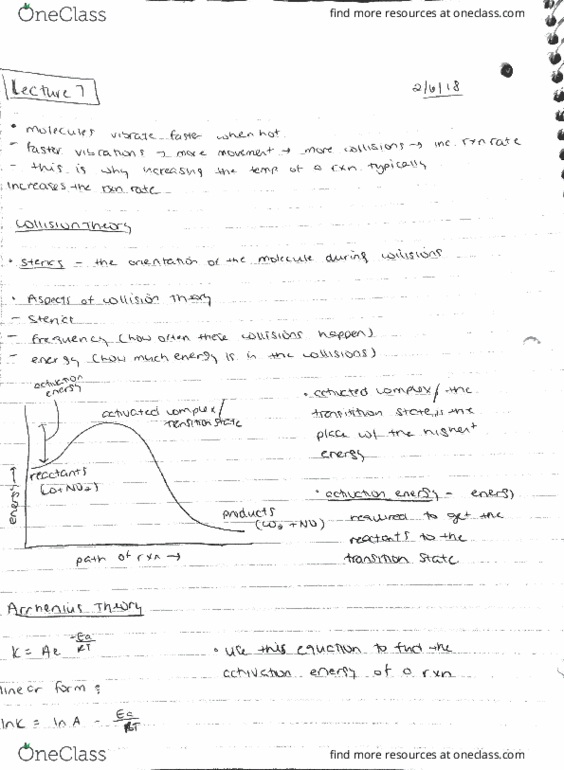 OneClass
find more resources at oneclass.com
Lecture 7
2/6/18
• molecules vibrate faster when hot.
- faster vibrations → more movement → more collisions → inc. rxn rate
- this is why increasing the temp of a rxn typically
increases the rxn rate
Collision Theory
• sterics - the orientation of the molecule during collisions
• Aspects of collision theory
- Steric
- frequency (how often these collisions happen)
- energy (how much energy is in the collisions)
activation
energy
activated complex/
transition state
reactants
(CO+NO2)
products
(CO2 + NO)
energy →
path of rxn →
• activated complex/ the
transition state, is the
place w/ the highest
energy
• activation energy - energy
required to get the
reactants to the
transition state
Arrhenius Theory
K = Ae^-Ea/RT
• use this equation to find the
activation energy of a rxn
linear form:
lnK = ln A - Ea/RT
OneClass
find more resources at oneclass.com